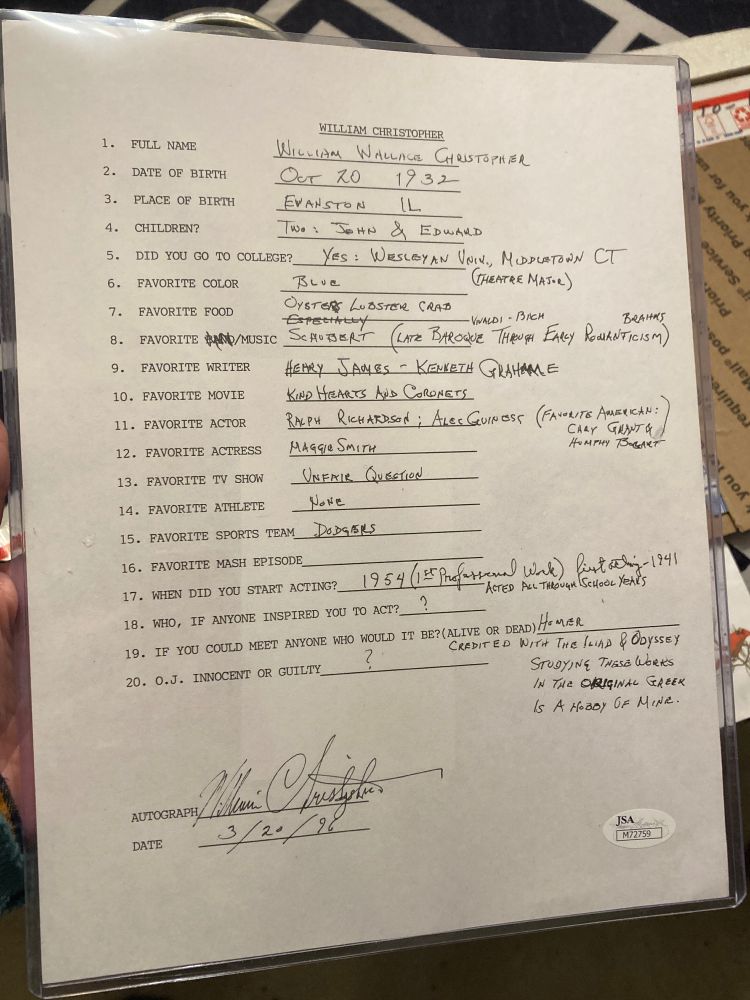 WILLIAM CHRISTOPHER
1. FULL NAME William Wallace Christopher
2. DATE OF BIRTH Oct 20 1932
3. PLACE OF BIRTH Evanston IL
4. CHILDREN? Two: John & Edward
5. DID YOU GO TO COLLEGE? Yes: Wesleyan Univ., Middletown CT
(Theatre Major)
6. FAVORITE COLOR Blue
7. FAVORITE FOOD Oysters Lobster Crab
Especially
Vivaldi - Bach Brahms
8. FAVORITE BAND/MUSIC Schubert (Late Baroque Through Early Romanticism)
9. FAVORITE WRITER Henry James - Kenneth Grahame
10. FAVORITE MOVIE Kind Hearts And Coronets
11. FAVORITE ACTOR Ralph Richardson; Alec Guiness (Favorite American:
Cary Grant &
Humphy Bogart
12. FAVORITE ACTRESS Maggie Smith
13. FAVORITE TV SHOW Unfair Question
14. FAVORITE ATHLETE None
15. FAVORITE SPORTS TEAM Dodgers
16. FAVORITE MASH EPISODE
17. WHEN DID YOU START ACTING? 1954 (1st Professional Work) first acting - 1941
Acted All Through School Years
18. WHO, IF ANYONE INSPIRED YOU TO ACT? ?
19. IF YOU COULD MEET ANYONE WHO WOULD IT BE?(ALIVE OR DEAD) Homer
Credited With The Iliad & Odyssey
Studying These Works
In The Original Greek
Is A Hobby Of Mine.
20. O.J. INNOCENT OR GUILTY ?
AUTOGRAPH William Christopher
DATE 3/20/96
JSA
M72759